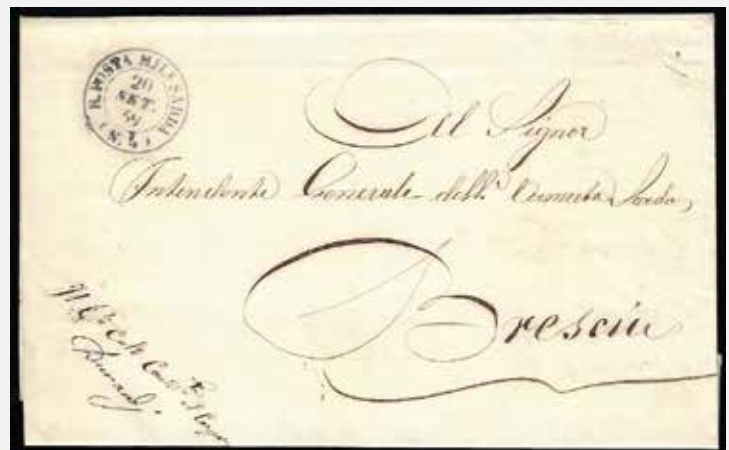 R. POSTA MIL. SARDA (N. 7)
20
SET.
59
Al Signor
Intendente Generale dell' Armata Sarda
Brescia
Durando